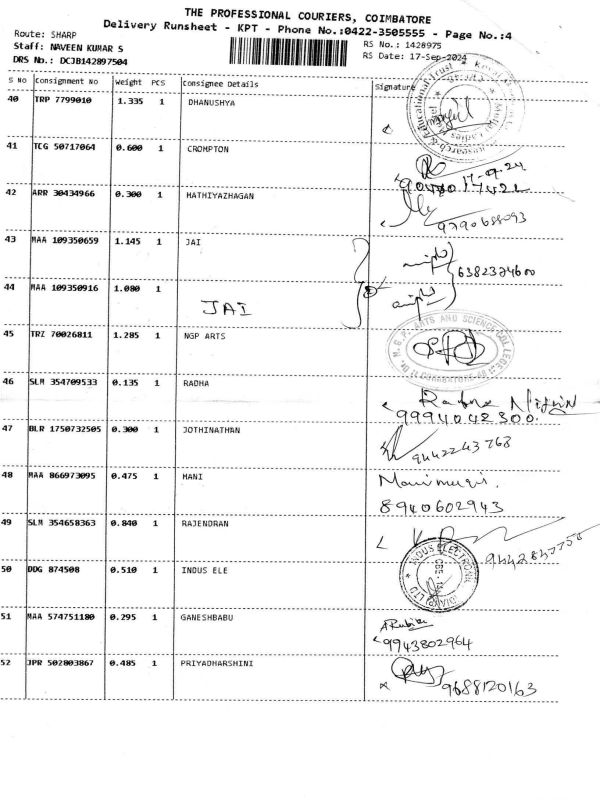 THE PROFESSIONAL COURIERS, COIMBATORE
Delivery Runsheet - KPT - Phone No.:0422-3505555 - Page No.:4
Route: SHARP
Staff: NAVEEN KUMAR S
DRS No.: DCJB142897504
RS No.: 1428975
RS Date: 17-Sep-2024
S No Consignment No Weight PCS Consignee Details Signature
40 TRP 7799010 1.335 1 DHANUSHYA
41 TCG 50717064 0.600 1 CROMPTON
17-09-24
42 ARR 30434966 0.300 1 MATHIYAZHAGAN
9790688093
43 MAA 109350659 1.145 1 JAI
6382324600
44 MAA 109350916 1.080 1
JAI
45 TRZ 70026811 1.285 1 NGP ARTS
ARTS AND SCIENCE COLLEGE
46 SLM 354709533 0.135 1 RADHA
9994042300
47 BLR 1750732505 0.300 1 JOTHINATHAN
9442243768
48 MAA 866973095 0.475 1 MANI
8940602943
49 SLM 354658363 0.840 1 RAJENDRAN
50 DDG 874508 0.510 1 INDUS ELE
51 MAA 574751180 0.295 1 GANESHBABU
9943802964
52 JPR 502803867 0.485 1 PRIYADHARSHINI
9688120163